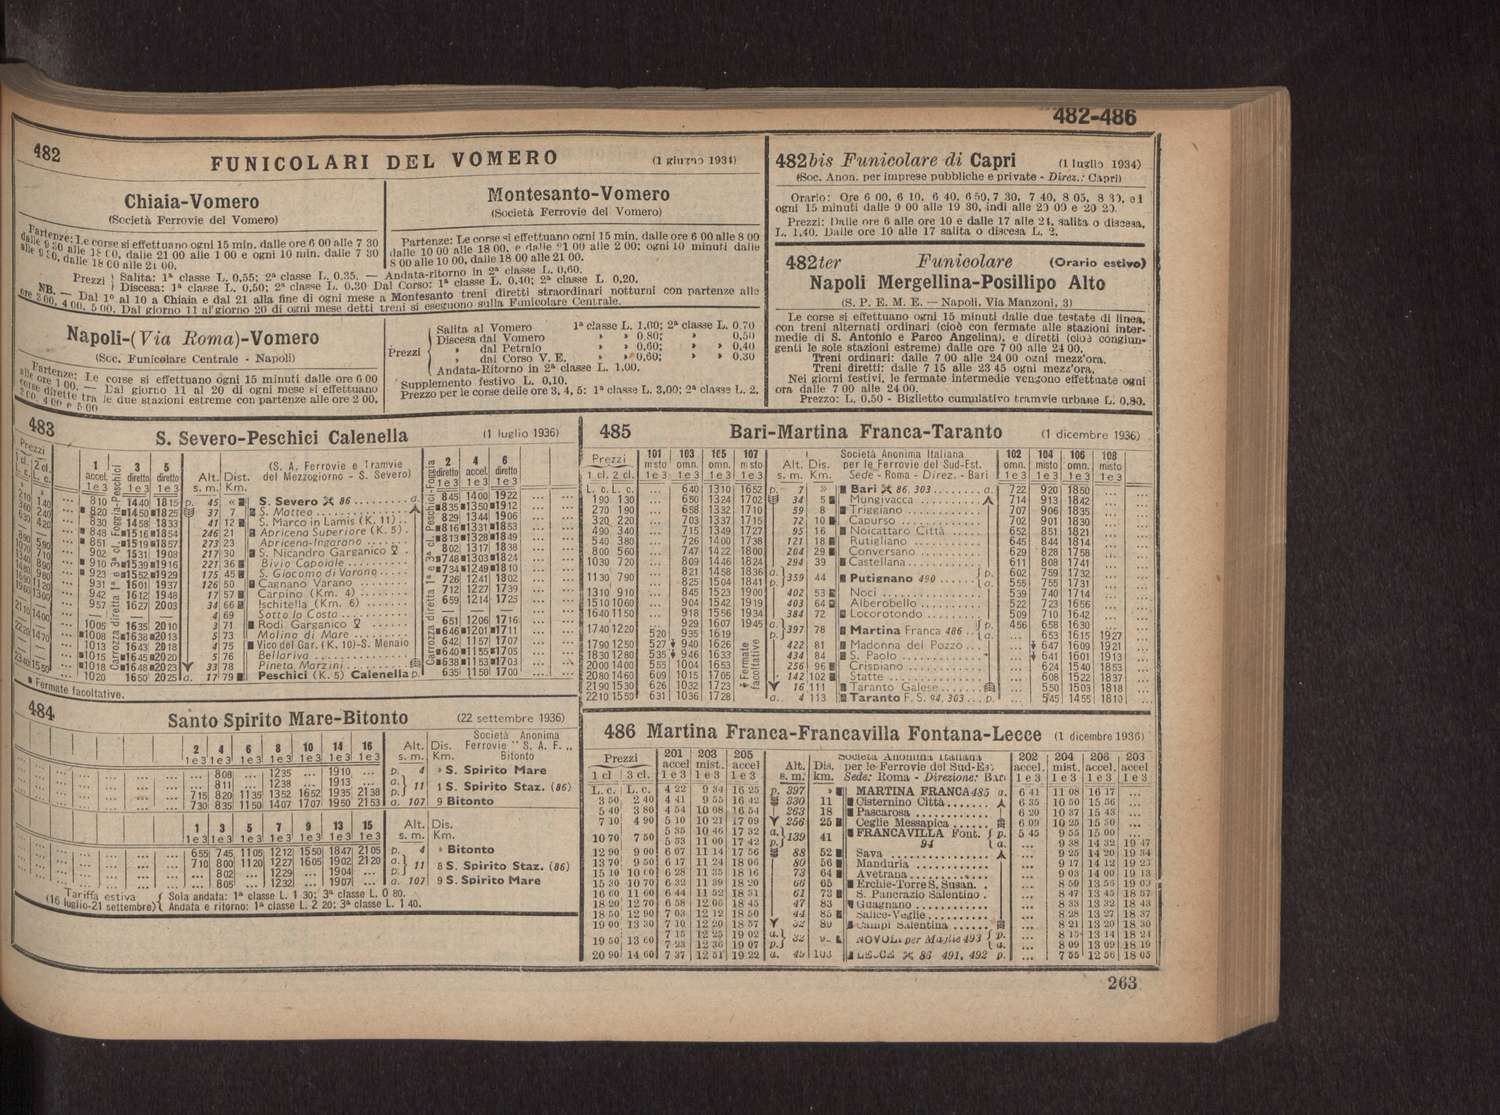 482-486
482
FUNICOLARI DEL VOMERO
(1 giugno 1934)
Chiaia-Vomero
(Società Ferrovie del Vomero)
Partenze: Le corse si effettuano ogni 15 min. dalle ore 6 00 alle 7 30
alle 18 00, dalle 21 00 alle 1 00 e ogni 10 min. dalle 7 30
alle 9 30, dalle 18 00 alle 21 00.
Montesanto-Vomero
(Società Ferrovie del Vomero)
Partenze: Le corse si effettuano ogni 15 min. dalle ore 6 00 alle 8 00
dalle 10 00 alle 18 00, e dalle 21 00 alle 2 00; ogni 10 minuti dalle
8 00 alle 10 00, dalle 18 00 alle 21 00.
Prezzi { Salita: 1ª classe L. 0,55; 2ª classe L. 0.35. — Andata-ritorno in 2ª classe L. 0,60.
Discesa: 1ª classe L. 0,50; 2ª classe L. 0.30 Dal Corso: 1ª classe L. 0.40; 2ª classe L. 0,20.
NB. — Dal 1º al 10 a Chiaia e dal 21 alla fine di ogni mese a Montesanto treni diretti straordinari notturni con partenze alle
ore 3 00, 4 00, 5 00. Dal giorno 11 al giorno 20 di ogni mese detti treni si eseguono sulla Funicolare Centrale.
Napoli-(Via Roma)-Vomero
(Soc. Funicolare Centrale - Napoli)
Partenze: Le corse si effettuano ogni 15 minuti dalle ore 6 00
alle ore 1 00. — Dal giorno 11 al 20 di ogni mese si effettuano
corse dirette tra le due stazioni estreme con partenze alle ore 2 00,
3 00, 4 00 e 5 00
Prezzi
Salita al Vomero 1ª classe L. 1.00; 2ª classe L. 0.70
Discesa dal Vomero » » 0.80; » » 0,50
» dal Petraio » » 0,60; » » 0,40
» dal Corso V. E. » » 0,60; » » 0.30
Andata-Ritorno in 2ª classe L. 1.00.
Supplemento festivo L. 0,10.
Prezzo per le corse delle ore 3, 4, 5: 1ª classe L. 3,00; 2ª classe L. 2.
482bis Funicolare di Capri (1 luglio 1934)
(Soc. Anon. per imprese pubbliche e private - Direz.: Capri)
Orario: Ore 6 00, 6 10, 6 40, 6 50, 7 30, 7 40, 8 05, 8 30, ed
ogni 15 minuti dalle 9 00 alle 19 30, indi alle 20 00 e 20 20.
Prezzi: Dalle ore 6 alle ore 10 e dalle 17 alle 24, salita o discesa,
L. 1,40. Dalle ore 10 alle 17 salita o discesa L. 2.
482ter Funicolare (Orario estivo)
Napoli Mergellina-Posillipo Alto
(S. P. E. M. E. — Napoli, Via Manzoni, 3)
Le corse si effettuano ogni 15 minuti dalle due testate di linea,
con treni alternati ordinari (cioè con fermate alle stazioni inter-
medie di S. Antonio e Parco Angelina), e diretti (cioè congiun-
genti le sole stazioni estreme) dalle ore 7 00 alle 24 00.
Treni ordinari: dalle 7 00 alle 24 00 ogni mezz'ora.
Treni diretti: dalle 7 15 alle 23 45 ogni mezz'ora.
Nei giorni festivi, le fermate intermedie vengono effettuate ogni
ora dalle 7 00 alle 24 00.
Prezzo: L. 0,50 - Biglietto cumulativo tramvie urbane L. 0,80.
483
S. Severo-Peschici Calenella (1 luglio 1936)
Prezzi
1 accel. 1 e 3 | 3 diretto 1 e 3 | 5 diretto 1 e 3 | Alt. s. m. | Dist. Km. | (S. A. Ferrovie e Tramvie del Mezzogiorno - S. Severo) | 2 diretto 1 e 3 | 4 accel. 1 e 3 | 6 diretto 1 e 3
810 1440 1815 p. 45 « S. Severo 86 a. 845 1400 1922
820 1450 1825 37 7 S. Matteo 835 1350 1912
830 1458 1833 41 12 S. Marco in Lamis (K. 11) 829 1344 1906
848 1516 1854 246 21 Apricena Superiore (K. 5) 816 1331 1853
851 1519 1857 273 23 Apricena-Ingarano 813 1328 1849
902 1531 1908 217 30 S. Nicandro Garganico 802 1317 1838
910 1539 1916 221 36 Bivio Capoiole 748 1303 1824
923 1552 1929 175 45 S. Giocomo di Varano 734 1249 1810
931 1601 1937 126 50 Cagnano Varano 726 1241 1802
942 1612 1948 17 57 Carpino (Km. 4) 712 1227 1739
957 1627 2003 34 66 Ischitella (Km. 6) 659 1214 1725
— — — 4 69 Sotto la Costa — — —
1005 1635 2010 3 71 Rodi Garganico 651 1206 1716
1008 1638 2013 5 73 Molino di Mare 646 1201 1711
1013 1643 2018 4 75 Vico del Gar. (K. 10)-S. Menaio 642 1157 1707
1015 1645 2020 5 76 Bellariva 640 1155 1705
1018 1648 2023 33 78 Pineta Marzini 638 1153 1703
1020 1650 2025 a. 17 79 Peschici (K. 5) Calenella p. 635 1150 1700
Carrozza diretta 1ª e 3ª cl. Foggia-Peschici
Carrozza diretta 1ª e 3ª cl. Peschici-Foggia
Fermate facoltative.
484
Santo Spirito Mare-Bitonto (22 settembre 1936)
2 4 6 8 10 14 16 Alt. s. m. Dis. Km. Società Anonima Ferrovie "S. A. F.,, Bitonto
1 e 3 1 e 3 1 e 3 1 e 3 1 e 3 1 e 3 1 e 3
... 808 ... 1235 ... 1910 ... p. 4 » S. Spirito Mare
... 811 ... 1238 ... 1913 ... a.
715 820 1135 1352 1652 1935 2138 p. 11 1 S. Spirito Staz. (86)
730 835 1150 1407 1707 1950 2153 a. 107 9 Bitonto
1 3 5 7 9 13 15 Alt. s. m. Dis. Km.
1 e 3 1 e 3 1 e 3 1 e 3 1 e 3 1 e 3 1 e 3
655 745 1105 1212 1550 1847 2105 p. 4 » Bitonto
710 800 1120 1227 1605 1902 2120 a. 11 8 S. Spirito Staz. (86)
... 802 ... 1229 ... 1904 ... p.
... 805 ... 1232 ... 1907 ... a. 107 9 S. Spirito Mare
Tariffa estiva (16 luglio-21 settembre)
Sola andata: 1ª classe L. 1 30; 3ª classe L. 0 80.
Andata e ritorno: 1ª classe L. 2 20; 3ª classe L. 1 40.
485 Bari-Martina Franca-Taranto (1 dicembre 1936)
Prezzi 1 cl. 2 cl. | 101 misto 1 e 3 | 103 omn. 1 e 3 | 105 omn. 1 e 3 | 107 misto 1 e 3 | Alt. s. m. | Dis. Km. | Società Anonima Italiana per le Ferrovie del Sud-Est. Sede - Roma - Direz. - Bari | 102 omn. 1 e 3 | 104 misto 1 e 3 | 106 omn. 1 e 3 | 108 misto 1 e 3
L. c. L. c. ... 640 1310 1652 p. 7 » Bari 86, 303 a. 722 920 1850 ...
1 90 1 30 ... 650 1324 1702 34 5 Mungivacca 714 913 1842 ...
2 70 1 90 ... 658 1332 1710 59 8 Triggiano 707 906 1835 ...
3 20 2 20 ... 703 1337 1715 72 10 Capurso 702 901 1830 ...
4 90 3 40 ... 715 1349 1727 95 16 Noicattaro Città 652 851 1821 ...
5 40 3 80 ... 726 1400 1738 121 18 Rutigliano 645 844 1814 ...
8 00 5 60 ... 747 1422 1800 204 29 Conversano 629 828 1758 ...
10 30 7 20 ... 809 1446 1824 294 39 Castellana 611 808 1741 ...
11 30 7 90 ... 821 1458 1836 a. 359 44 Putignano 490 p. 602 759 1732 ...
... 825 1504 1841 p. a. 555 755 1731 ...
13 10 9 10 ... 845 1523 1900 402 53 Noci 539 740 1714 ...
15 10 10 60 ... 904 1542 1919 403 64 Alberobello 522 723 1656 ...
16 40 11 50 ... 918 1556 1934 384 72 Locorotondo 509 710 1642 ...
17 40 12 20 ... 929 1607 1945 a. 397 78 Martina Franca 486 p. 456 658 1630 ...
520 935 1619 p. a. ... 653 1615 1927
17 90 12 50 527 940 1626 422 81 Madonna del Pozzo ... 647 1609 1921
18 30 12 80 535 946 1633 434 84 S. Paolo ... 641 1601 1913
20 00 14 00 555 1004 1653 256 96 Crispiano ... 624 1540 1853
20 80 14 60 609 1015 1705 142 102 Statte ... 608 1522 1837
21 90 15 30 626 1032 1723 16 111 Taranto Galese ... 550 1503 1818
22 10 15 50 631 1036 1728 a. 4 113 Taranto F. S. 94, 303 p. ... 545 1455 1810
Fermate facoltative
486 Martina Franca-Francavilla Fontana-Lecce (1 dicembre 1936)
Prezzi 1 cl 3 cl. | 201 accel 1 e 3 | 203 mist. 1 e 3 | 205 accel 1 e 3 | Alt. s. m. | Dis. km. | Società Anonima Italiana per le Ferrovie del Sud-Est. Sede: Roma - Direzione: Bari | 202 accel. 1 e 3 | 204 mist. 1 e 3 | 206 accel. 1 e 3 | 203 accel 1 e 3
L. c. L. c. 4 22 9 34 16 25 p. 397 » MARTINA FRANCA 485 a. 6 41 11 08 16 17 ...
3 50 2 40 4 41 9 55 16 42 330 11 Cisternino Città 6 35 10 50 15 56 ...
5 40 3 80 4 54 10 08 16 54 263 18 Pascarosa 6 20 10 37 15 43 ...
7 10 4 90 5 10 10 21 17 09 256 25 Ceglie Messapica 6 09 10 25 15 30 ...
10 70 7 50 5 35 10 46 17 32 a. 139 41 FRANCAVILLA Font. p. 5 45 9 55 15 00 ...
5 53 11 00 17 42 p. 94 a. ... 9 38 14 32 19 47
12 90 9 00 6 07 11 14 17 56 88 52 Sava ... 9 25 14 20 19 34
13 70 9 50 6 17 11 24 18 06 80 56 Manduria ... 9 17 14 12 19 25
15 10 10 60 6 28 11 35 18 16 73 64 Avetrana ... 9 03 14 00 19 13
15 30 10 70 6 32 11 39 18 20 66 65 Erchie-Torre S. Susan. ... 8 59 13 56 19 09
16 60 11 60 6 44 11 52 18 31 61 73 S. Pancrazio Salentino ... 8 47 13 45 18 57
18 20 12 70 6 58 12 06 18 45 47 83 Guagnano ... 8 33 13 32 18 43
18 50 12 90 7 03 12 12 18 50 44 85 Salice-Veglie ... 8 28 13 27 18 37
19 00 13 30 7 10 12 20 18 57 32 89 Campi Salentina ... 8 21 13 20 18 30
19 50 13 60 7 15 12 25 19 02 a. NOVOLI per Maglie 493 p. ... 8 15 13 14 18 24
7 23 12 36 19 07 p. a. ... 8 09 13 09 18 19
20 90 14 60 7 37 12 51 19 22 a. 49 103 LECCE 86 491, 492 p. ... 7 55 12 56 18 05
263